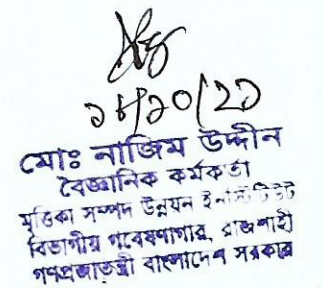 ১৮/১০/২১
মোঃ নাজিম উদ্দীন
বৈজ্ঞানিক কর্মকর্তা
মৃত্তিকা সম্পদ উন্নয়ন ইনস্টিটিউট
বিভাগীয় গবেষণাগার, রাজশাহী
গণপ্রজাতন্ত্রী বাংলাদেশ সরকার